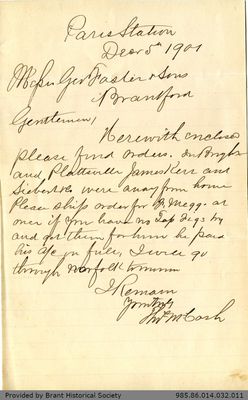 Paris Station
Decr 5th 1901
Messrs Geo Foster & Sons
Brantford
Gentlemen,
Herewith enclose
please find orders.
and Plattsville James Kerr and
were away from home
Please ship order for at
once if you have no Top by
and get them for him he paid
his a/c in full, I will go
through Norfolk
I Remain
Yours truly
McCash
Provided by Brant Historical Society
985.86.014.032.011